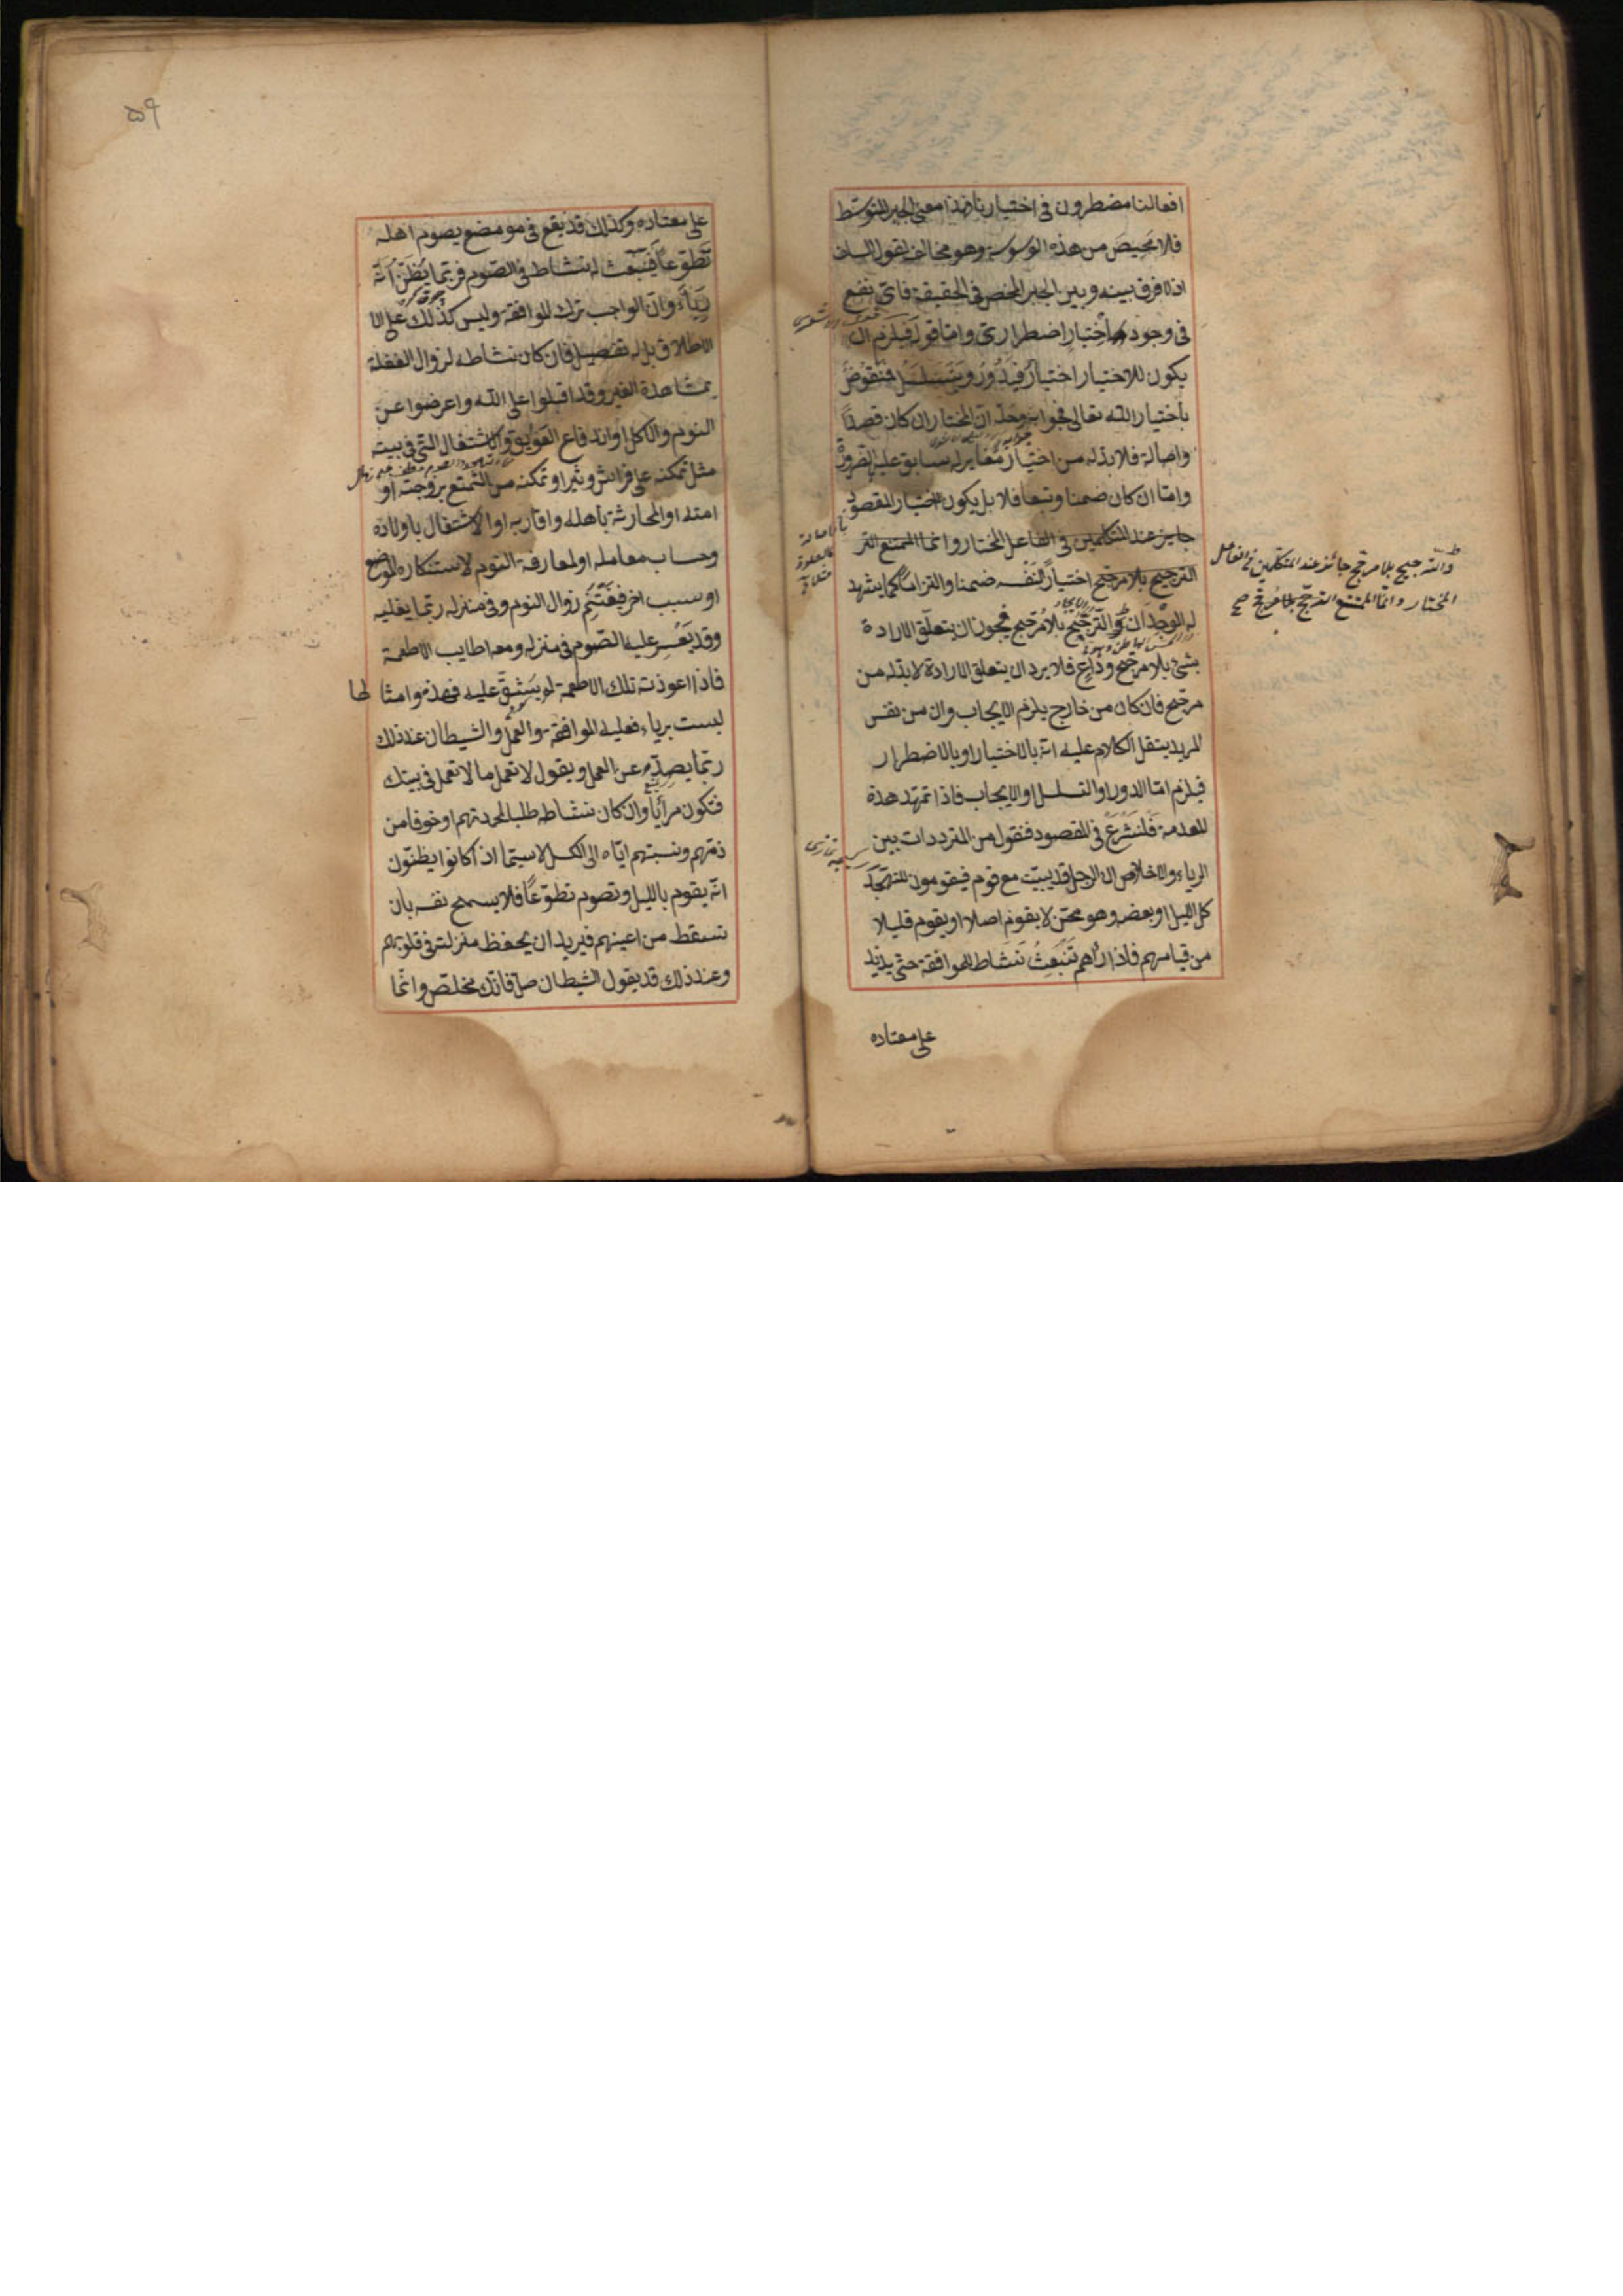 افعالنا مضطرون فى اختيارنا فهذا معنى الجبر المتوسط
فلا مَحِيصَ من هذه الوسوسة وهو مخالف لقول السلف
اذ لا فرق بينه وبين الجبر المحض فى الحقيقة فاىّ نفع
فى وجود اختيار اضطرارى وامّا قوله فيلزم ان
يكون للاختيار اختيار فَيَدُورُ ويتسلسل فنَقُوضٌ
باختيار الله تعالى فجوابه وحلّه انّ المختار ان كان قصداً
واصالة فلا بدّ له من اختيار مُغاير له سابق عليه بالضرورة
وامّا ان كان ضمنا وتبعا فلا بل يكون اختيار المقصود
جايز عند المتكلمين فى الفاعل المختار وانما الممتنع التر
الترجيح بلا مرجّح اختياراً لنَفْسه ضمنا والتزاماً كما يشهد
له الوِجْدَان والتّرجيح بلا مُرجّح فيجوز ان يتعلّق الارادة
بشئ بلا مرجّح ودَاعٍ فلا يرد ان يتعلق الارادة لا بدّ له من
مرجّح فان كان من خارج يلزم الايجاب وان من نفس
المريد ينتقل الكلام عليه انّه بالاختيار او بالاضطرار
فيلزم امّا الدور او التسلسل او الايجاب فاذا تمهّد هذه
المقدمة فَلْنَشْرَعْ فى المقصود فنقول من المترددات بين
الرياء والاخلاص ان الرجل قد يبيت مع قوم فيقومون للتهجّد
كل الليل او بعضه وهو ممّن لا يقوم اصلا او يقوم قليلا
من قيامهم فاذا رآهم تَنْبَعِثُ نَشَاط للموافقة حتى يزيد
على معتاده
والتّرجيح بلا مرجّح جائز عند المتكلّمين فى الفاعل
المختار وانّما الممتنع الترجّح بلا مرجّح صح
بالاصالة
۵۹
على معتاده وكذلك قد يقع فى موضع يصوم اهله
تَطَوّعاً فَيَنْبَعث له نشاط فى الصّوم فربّما يُظَنّ انّه
رِيَاء وانّ الواجب ترك الموافقة وليس كذلك على الا
الاطلاق بل له تفصيل فان كان نشاطه لزوال الغفلة
بمشاهدة الغير وقد اقبلوا على الله واعرضوا عن
النوم والاكل او اندفاع العوايق والاشتغال التى فى بيته
مثل تمكنه على فراش وثير او تمكنه من التّمتع بزوجته او
امته او المحادثة باهله واقاربه او الاشتغال باولاده
وحساب معامله او لمفارقة النوم لاستنكاره الموضع
او سبب اخر فيَغْتَنِم زوال النوم وفى منزله ربّما يغلبه
وقد يَعْسِر عليه الصّوم فى منزله ومعه اطايب الاطعمة
فاذا اعوذته تلك الاطعمة لم يَشُقّ عليه فهذه وامثالها
ليست برياء فعليه الموافقة والعمل والشيطان عند ذلك
ربّما يصدّه عن العمل ويقول لا تعمل ما لا تعمل فى بيتك
فتكون مرائياً وان كان نشاطه طلبا لمحمدتهم او خوفا من
ذمّهم ونسبتهم ايّاه الى الكسل لا سيّما اذا كانوا يظنّون
انّه يقوم بالليل وتصوم تطوّعاً فلا يسمح نفسه بان
تسقط من اعينهم فيريد ان يحفظ منزلته فى قلوبهم
وعند ذلك قد يقول الشيطان صلّ فانّك مخلص وانّما